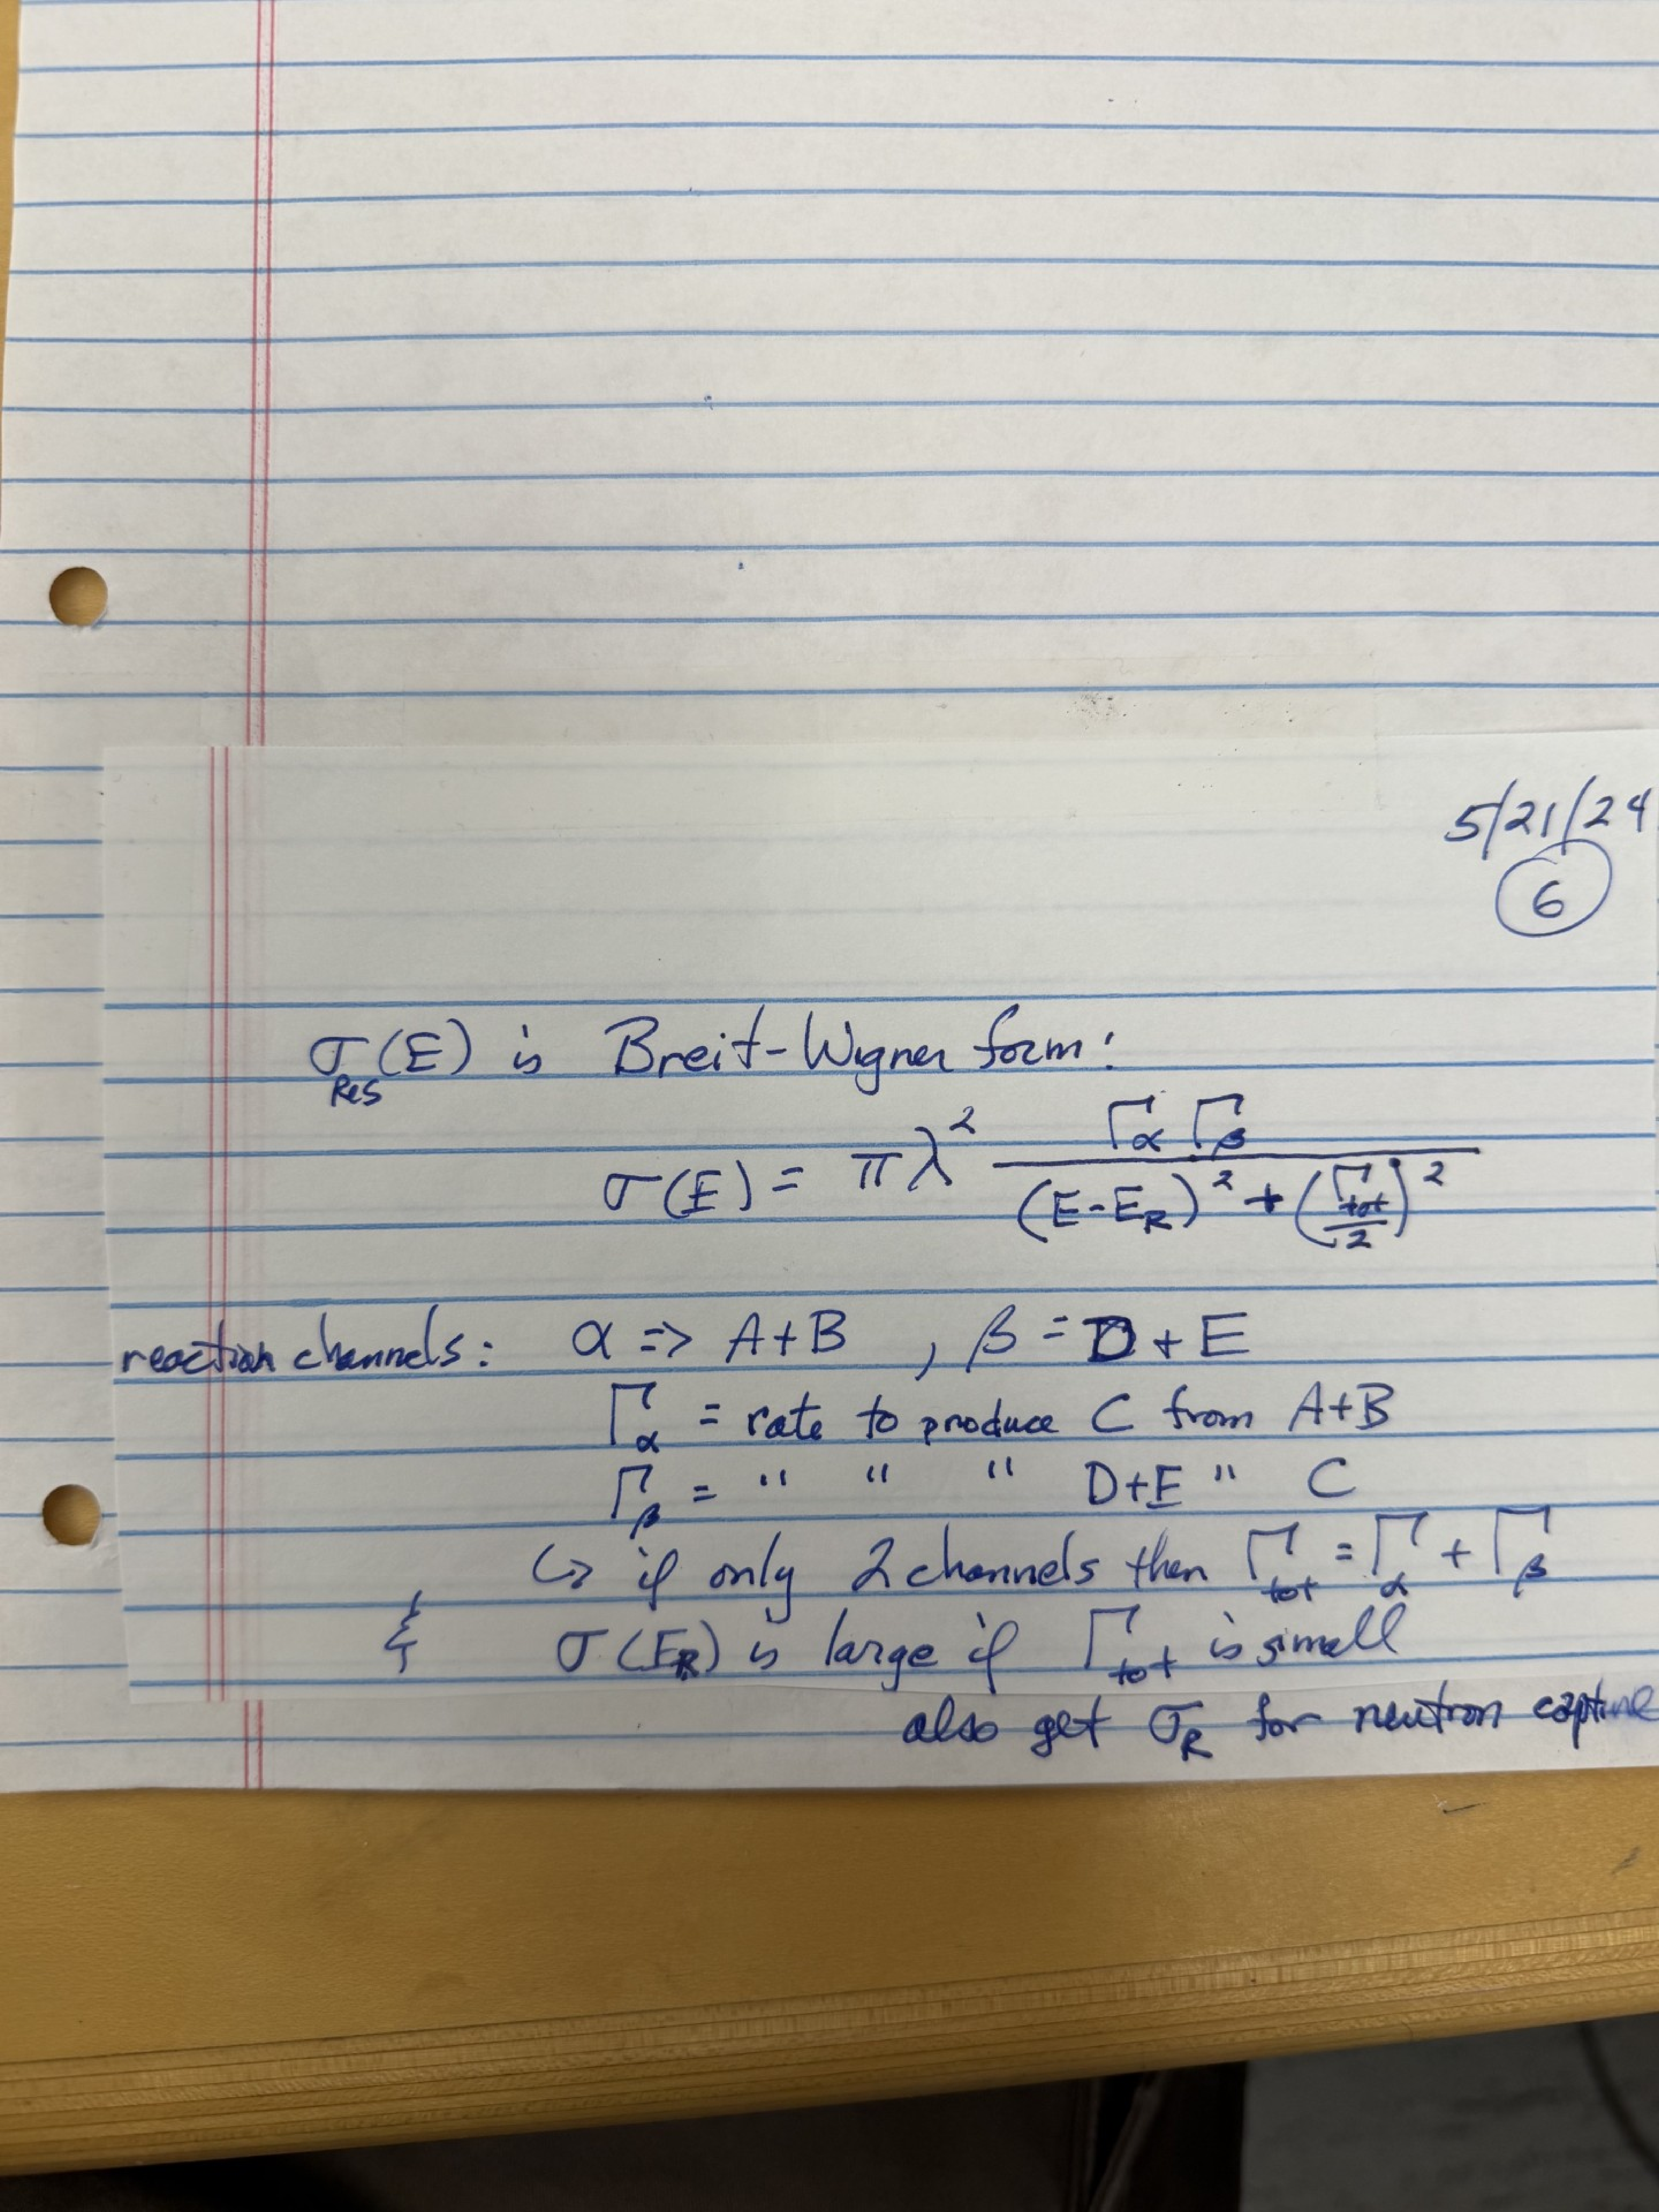 5/21/24
6
σ_Res(E) is Breit-Wigner form:
σ(E) = πλ² Γ_α Γ_β / ((E-E_R)² + (Γ_tot/2)²)
reaction channels: α => A+B , β = D+E
Γ_α = rate to produce C from A+B
Γ_β = " " " D+E " C
↳ if only 2 channels then Γ_tot = Γ_α + Γ_β
& σ(E_R) is large if Γ_tot is small
also get σ_R for neutron capture